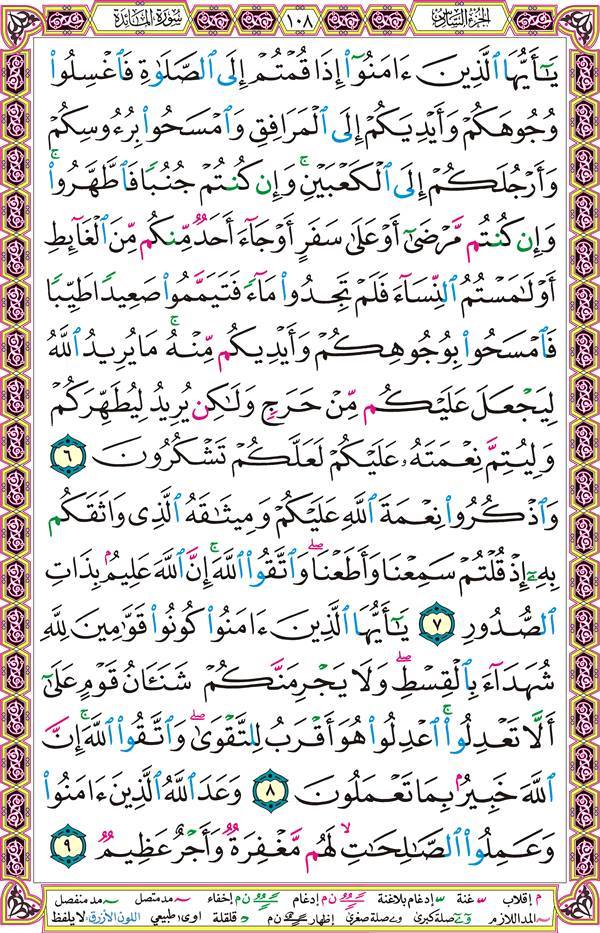 الجزء السادس ١٠٨ سورة المائدة
يَٰٓأَيُّهَا ٱلَّذِينَ ءَامَنُوٓا۟ إِذَا قُمْتُمْ إِلَى ٱلصَّلَوٰةِ فَٱغْسِلُوا۟
وُجُوهَكُمْ وَأَيْدِيَكُمْ إِلَى ٱلْمَرَافِقِ وَٱمْسَحُوا۟ بِرُءُوسِكُمْ
وَأَرْجُلَكُمْ إِلَى ٱلْكَعْبَيْنِ ۚ وَإِن كُنتُمْ جُنُبًا فَٱطَّهَّرُوا۟ ۚ
وَإِن كُنتُم مَّرْضَىٰٓ أَوْ عَلَىٰ سَفَرٍ أَوْ جَآءَ أَحَدٌ مِّنكُم مِّنَ ٱلْغَآئِطِ
أَوْ لَٰمَسْتُمُ ٱلنِّسَآءَ فَلَمْ تَجِدُوا۟ مَآءً فَتَيَمَّمُوا۟ صَعِيدًا طَيِّبًا
فَٱمْسَحُوا۟ بِوُجُوهِكُمْ وَأَيْدِيكُم مِّنْهُ ۚ مَا يُرِيدُ ٱللَّهُ
لِيَجْعَلَ عَلَيْكُم مِّنْ حَرَجٍ وَلَٰكِن يُرِيدُ لِيُطَهِّرَكُمْ
وَلِيُتِمَّ نِعْمَتَهُۥ عَلَيْكُمْ لَعَلَّكُمْ تَشْكُرُونَ ٦
وَٱذْكُرُوا۟ نِعْمَةَ ٱللَّهِ عَلَيْكُمْ وَمِيثَٰقَهُ ٱلَّذِى وَاثَقَكُم
بِهِۦٓ إِذْ قُلْتُمْ سَمِعْنَا وَأَطَعْنَا ۖ وَٱتَّقُوا۟ ٱللَّهَ ۚ إِنَّ ٱللَّهَ عَلِيمٌۢ بِذَاتِ
ٱلصُّدُورِ ٧ يَٰٓأَيُّهَا ٱلَّذِينَ ءَامَنُوا۟ كُونُوا۟ قَوَّٰمِينَ لِلَّهِ
شُهَدَآءَ بِٱلْقِسْطِ ۖ وَلَا يَجْرِمَنَّكُمْ شَنَـَٔانُ قَوْمٍ عَلَىٰٓ
أَلَّا تَعْدِلُوا۟ ۚ ٱعْدِلُوا۟ هُوَ أَقْرَبُ لِلتَّقْوَىٰ ۖ وَٱتَّقُوا۟ ٱللَّهَ ۚ إِنَّ
ٱللَّهَ خَبِيرٌۢ بِمَا تَعْمَلُونَ ٨ وَعَدَ ٱللَّهُ ٱلَّذِينَ ءَامَنُوا۟
وَعَمِلُوا۟ ٱلصَّٰلِحَٰتِ ۙ لَهُم مَّغْفِرَةٌ وَأَجْرٌ عَظِيمٌ ٩
م إقلاب غنة إدغام بلاغنة ن م إدغام ن م إخفاء مد متصل مد منفصل
المد اللازم صلة كبرى صلة صغرى إظهار ن م قلقلة اوى طبيعي اللون الأزرق: لا يلفظ